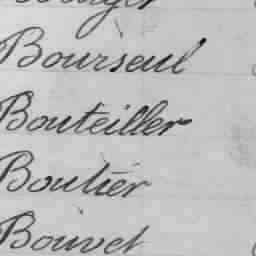 Bourseul
Bouteiller
Boutier
Bouvet